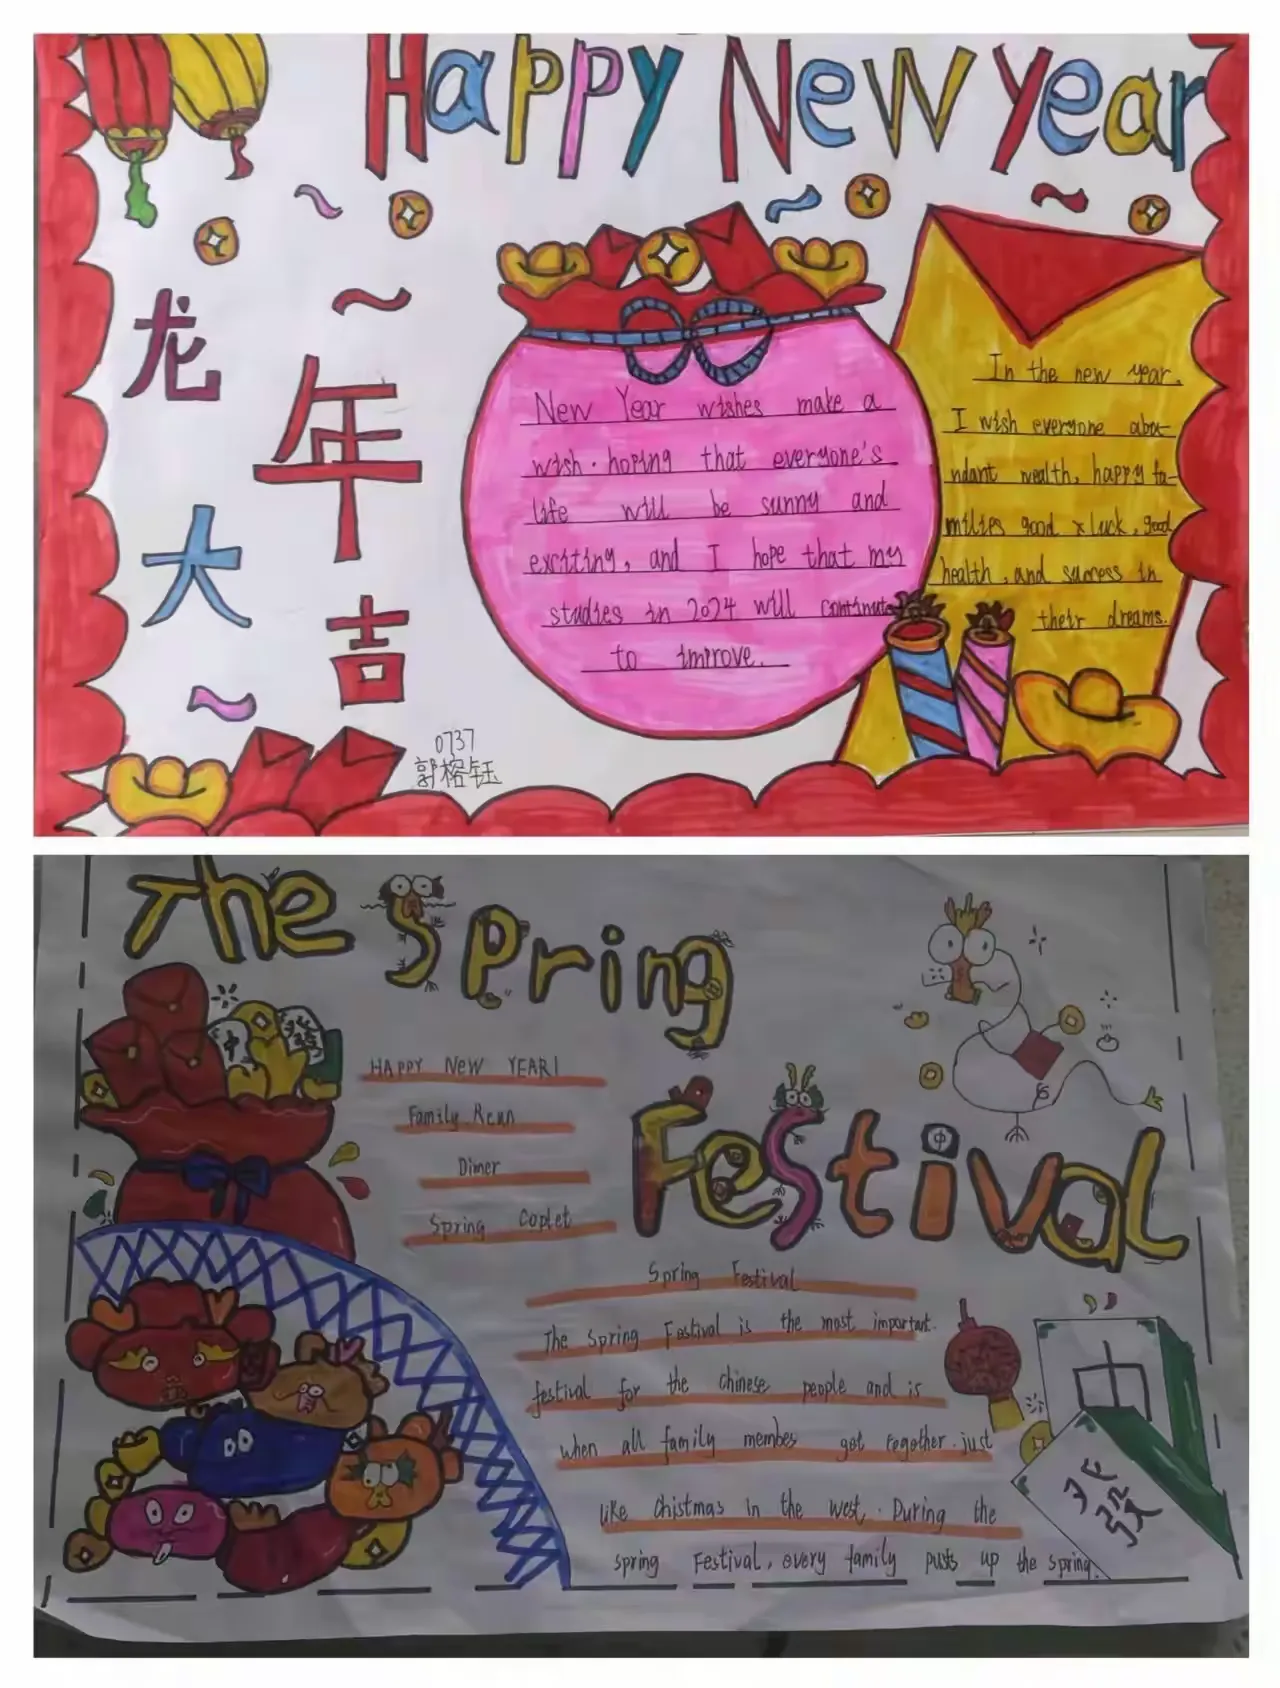 Happy New Year
龙
年
大
吉
New Year wishes make a
wish. hoping that everyone's
life will be sunny and
exciting, and I hope that my
studies in 2024 will continute
to improve.
In the new year.
I wish everyone abou-
ndant wealth, happy fa-
milies good luck, good
health, and success in
their dreams.
0737
郭榕钰
The Spring
Festival
中
發
HAPPY NEW YEAR!
Family Reun
Dimer
Spring Coplet
Spring Festival
The Spring Festival is the most important.
festival for the chinese people and is
when all family membes get together. just
like Chistmas in the west. During the
spring Festival, every family puts up the spring.
中
發